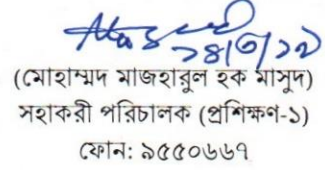 (মোহাম্মদ মাজহারুল হক মাসুদ)
সহাকরী পরিচালক (প্রশিক্ষণ-১)
ফোন: ৯৫৫০৬৬৭